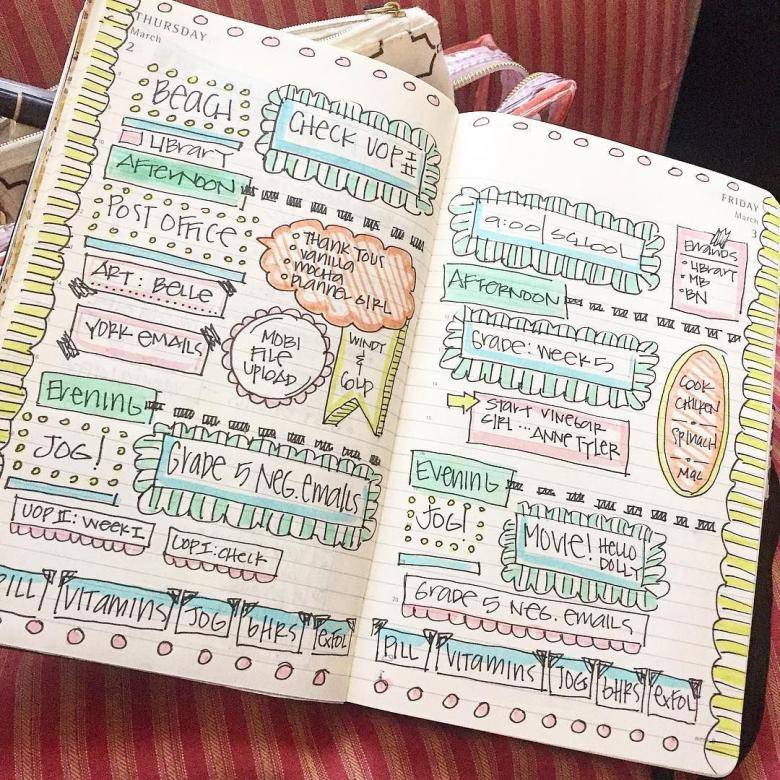 THURSDAY
March
2
BEACH
CHECK UOP I
II
LIBRARY
AFTERNOON
POST OFFICE
• THANK YOUS
• VANILLA
• MOCHA
• PLANNER GIRL
ART: BELLE
YORK EMAILS
MOBI
FILE
UPLOAD
WINDY
&
COLD
EVENING
JOG!
GRADE 5 NEG. EMAILS
UOP II: WEEK I
UOP I: CHECK
PILL
VITAMINS
JOG
6HRS
EXFOL
FRIDAY
March
3
9:00 SCHOOL
ERRANDS
• LIBRARY
• MB
• BN
AFTERNOON
GRADE: WEEK 5
COOK
CHICKEN
•
SPINACH
•
MAC
START VINEGAR
GIRL ... ANNE TYLER
EVENING
JOG!
MOVIE! HELLO
DOLLY
GRADE 5 NEG. EMAILS
PILL
VITAMINS
JOG
6HRS
EXFOL